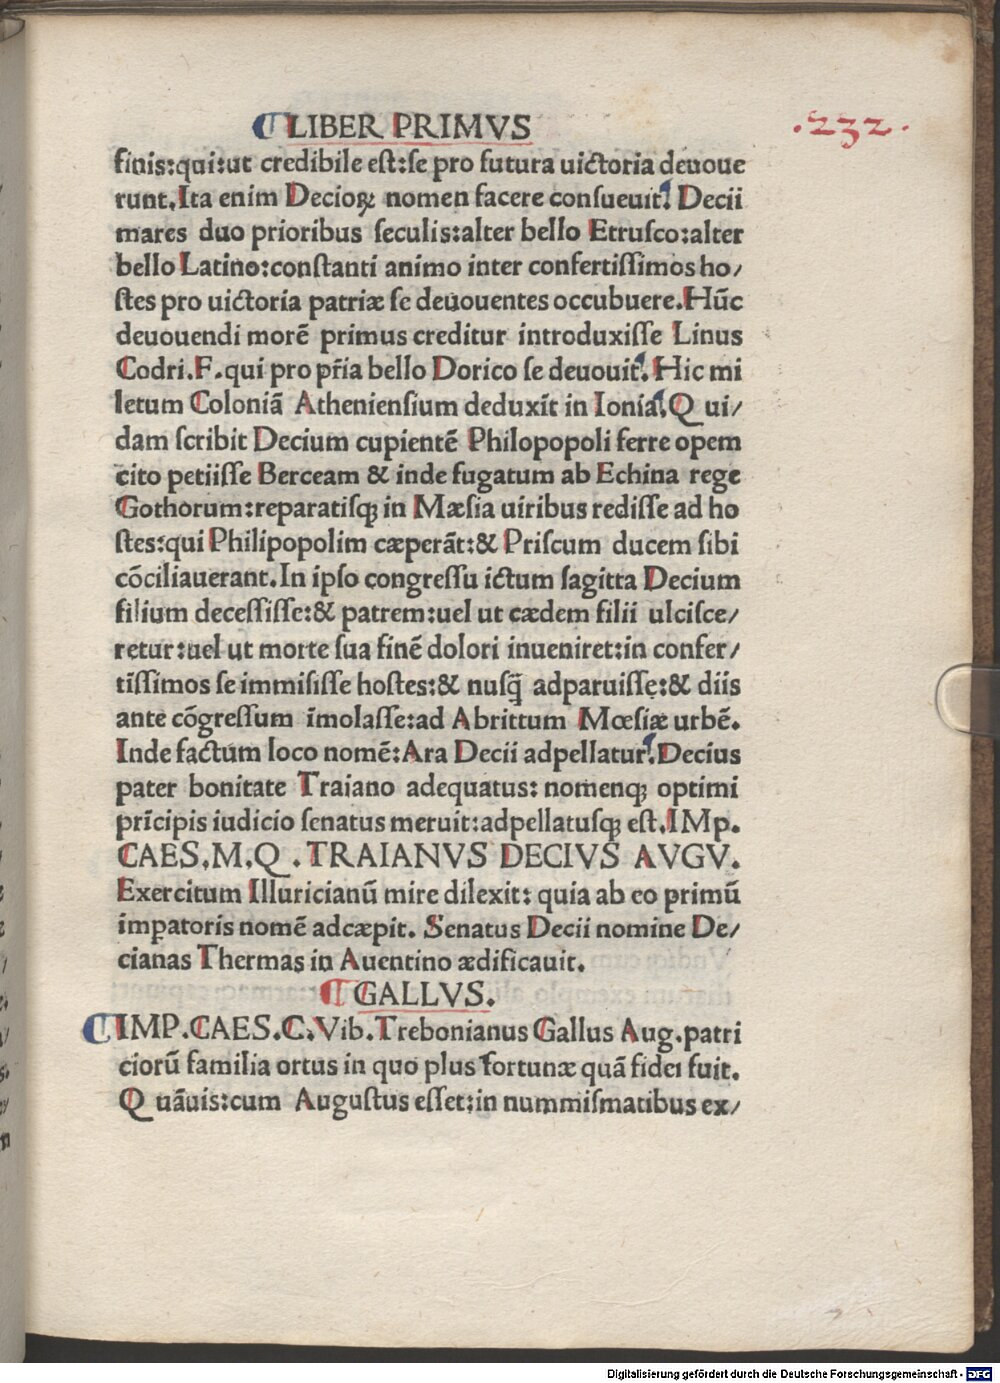 LIBER PRIMVS
.232.
finis:qui:ut credibile eſt:ſe pro futura uictoria deuoue
runt.Ita enim Decioꝝ nomen facere conſueuit. Decii
mares duo prioribus ſeculis:alter bello Etruſco:alter
bello Latino:conſtanti animo inter confertiſſimos ho/
ſtes pro uictoria patriæ ſe deuouentes occubuere.Hūc
deuouendi morē primus creditur introduxiſſe Linus
Codri.F.qui pro pr̄ia bello Dorico ſe deuouit.Hic mi
letum Coloniā Athenienſium deduxit in Ionia.Q ui/
dam ſcribit Decium cupientē Philopopoli ferre opem
cito petiiſſe Berceam & inde fugatum ab Echina rege
Gothorum:reparatiſqꝫ in Mæſia uiribus rediſſe ad ho
ſtes:qui Philipopolim cæperāt:& Priſcum ducem ſibi
cōciliauerant.In ipſo congreſſu ictum ſagitta Decium
filium deceſſiſſe:& patrem:uel ut cædem filii ulciſce/
retur:uel ut morte ſua finē dolori inueniret:in confer/
tiſſimos ſe immiſiſſe hoſtes:& nuſq̄ adparuiſſe:& diis
ante cōgreſſum īmolaſſe:ad Abrittum Mœſiæ urbē.
Inde factum loco nomē:Ara Decii adpellatur.Decius
pater bonitate Traiano adequatus: nomenqꝫ optimi
prīcipis iudicio ſenatus meruit:adpellatuſqꝫ eſt.IMp.
CAES.M.Q .TRAIANVS DECIVS AVGV.
Exercitum Illuricianū mire dilexit: quia ab eo primū
imꝑatoris nomē adcæpit. Senatus Decii nomine De/
cianas Thermas in Auentino ædificauit.
GALLVS.
IMP.CAES.C.Vib.Trebonianus Gallus Aug.patri
ciorū familia ortus in quo plus fortunæ quā fidei fuit.
Q uāuis:cum Auguſtus eſſet:in nummiſmatibus ex/
Digitalisierung gefördert durch die Deutsche Forschungsgemeinschaft - DFG